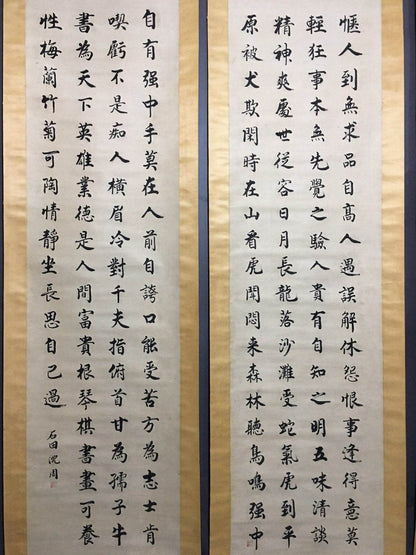 愜人到無求品自高人遇誤解休怨恨事逢得意莫
輕狂事本無先覺之驗人貴有自知之明五味清談
精神爽處世從容日月長龍落沙灘受蛇氣虎到平
原被犬欺閑時在山看虎閗悶来森林聽鳥鳴强中
自有强中手莫在人前自誇口能受苦方為志士肯
喫虧不是痴人橫眉冷對千夫指俯首甘為孺子牛
書為天下英雄業德是人間富貴根琴棋書畫可養
性梅蘭竹菊可陶情靜坐長思自己過
石田沈周